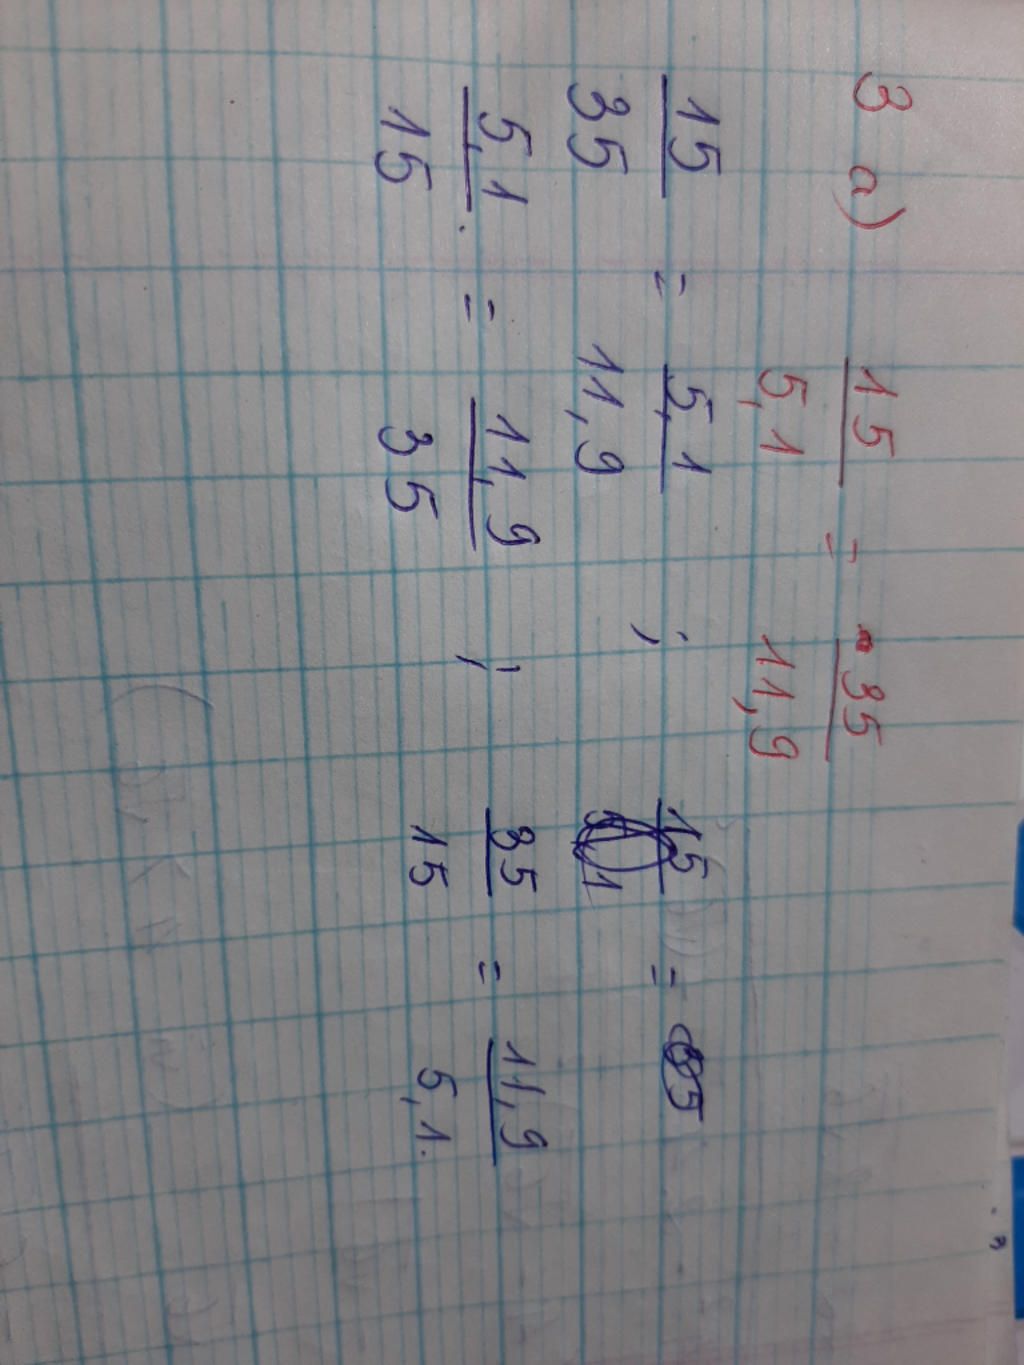 3 a) 15/5,1 = 35/11,9
15/35 = 5,1/11,9 ; 15/ =
5,1/15 = 11,9/35 ; 35/15 = 11,9/5,1.